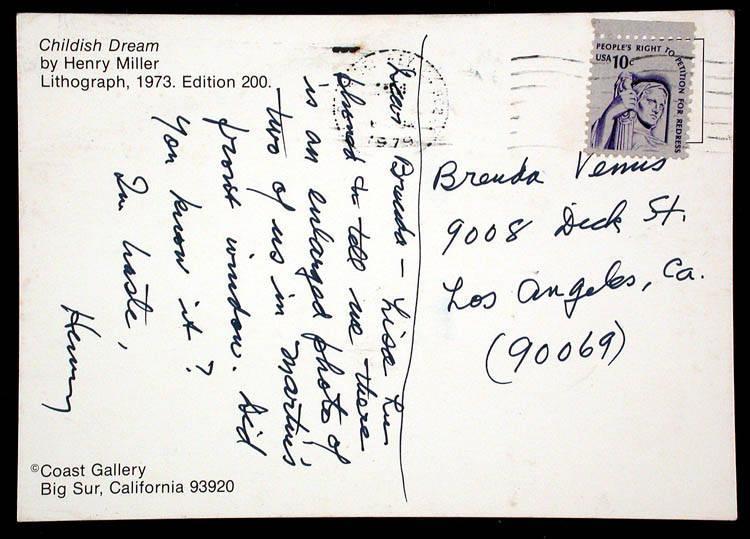 Childish Dream
by Henry Miller
Lithograph, 1973. Edition 200.
Dear Brenda – Lisa Lu
phoned to tell me there
is an enlarged photo of
two of us in Martin's
front window. Did
you know it?
In haste,
Henry
©Coast Gallery
Big Sur, California 93920
1979
PEOPLE'S RIGHT TO PETITION FOR REDRESS
USA 10c
Brenda Venus
9008 Dick St.
Los Angeles, Ca.
(90069)